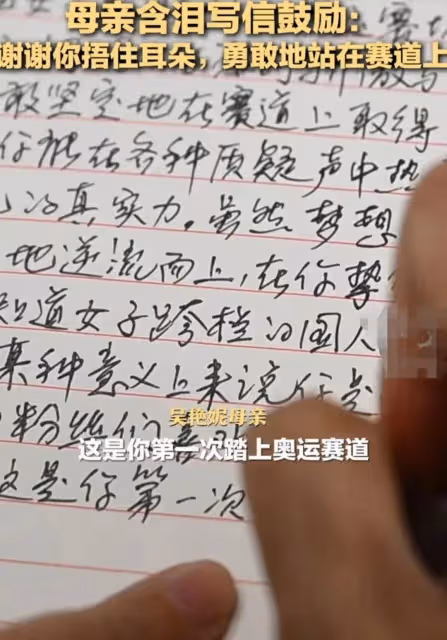 母亲含泪写信鼓励:
谢谢你捂住耳朵，勇敢地站在赛道上
敢坚定地在赛道上取得
你能在各种质疑声中热
的真实力。虽然梦想
地逆流而上，在你挚
知道女子跨栏的国人
某种意义上来说你是
吴艳妮母亲
粉丝们
这是你第一次踏上奥运赛道
这是你第一次